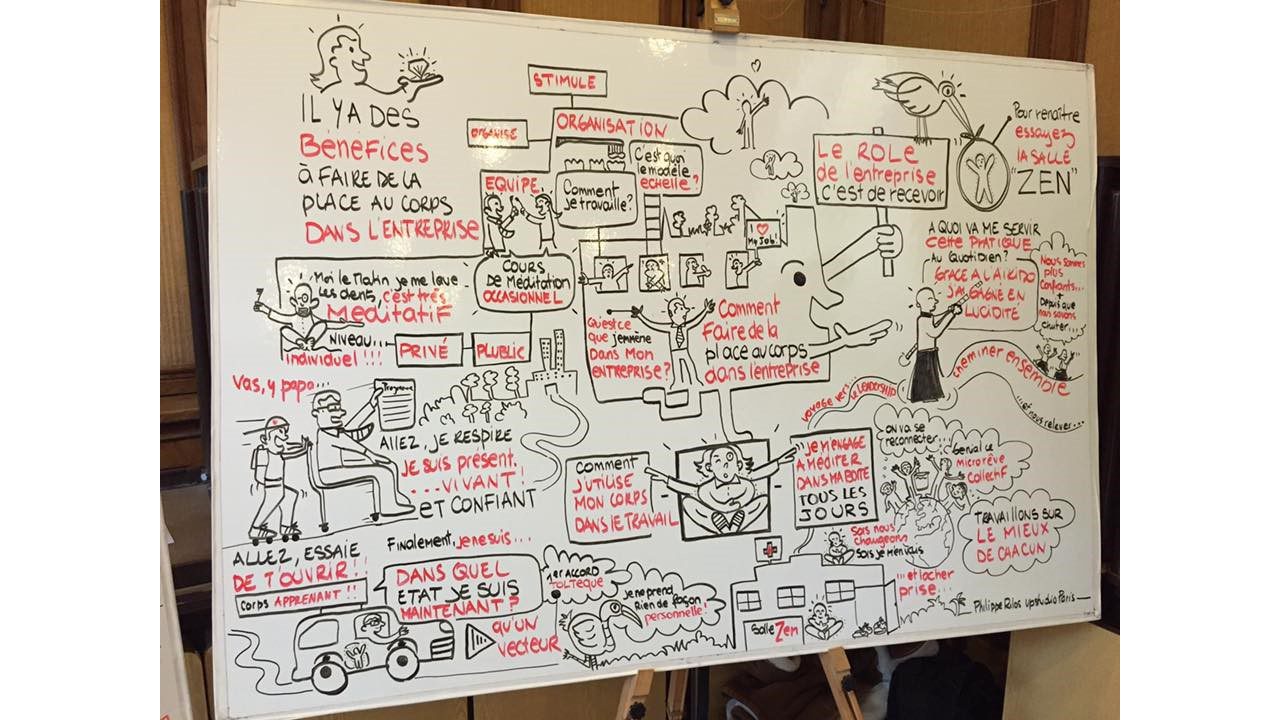 IL Y A DES
BÉNÉFICES
à FAIRE DE LA
PLACE AU CORPS
DANS L'ENTREPRISE
STIMULE
ORGANISE
ORGANISATION
EQUIPE
Comment
je travaille?
C'est quoi
le modèle
echelle?
COURS
de Méditation
OCCASIONNEL
Moi le Matin je me lave
les dents, c'est très
MéDitatiF
Niveau...
individuel !!!
PRIVÉ
PLUBLIC
I ♥
My Job!
Le ROLE
de l'entreprise
c'est de recevoir
Pour renaître
essayez
la SALLE
"ZEN"
Qu'est ce
que j'emmène
Dans Mon
ENTREPRISE?
Comment
Faire de la
place au corps
dans l'entreprise
A QUOI VA ME SERVIR
cette PRATIQUE
AU QUOTIDIEN?
GRACE A L'AIKIDO
J'AI GAGNÉ EN
LUCIDITÉ
Nous sommes
plus
confiants...
+
Depuis que
nous savons
chuter...
cheminer ensemble
...et nous relever...
voyage vers... le LEADERSHIP
Vas, y papa...
ALLEZ, JE RESPIRE
JE SUIS PRÉSENT.
...VIVANT!
et CONFIANT
ALLEZ, ESSAIE
DE T'OUVRIR!!
Corps APPRENANT!!
Finalement, je ne suis...
DANS QUEL
ETAT JE SUIS
MAINTENANT?
qu'un
vecteur
1er ACCORD
TOLTEQUE
Je ne prend
Rien de façon
personnelle!
COMMENT
J'UTILISE
MON CORPS
DANS le TRAVAIL
Je M'ENGAGE
A MÉDITER
DANS MA BOITE
TOUS LES
JOURS
on va se
reconnecter...
Genial ce
microrêve
collectif
TRAVAILLONS SUR
LE MIEUX
DE CHACUN
Sois nous
changeons
Sois je m'en vais
...et lacher
prise...
Salle Zen
Philippe Rilos upstudio Paris